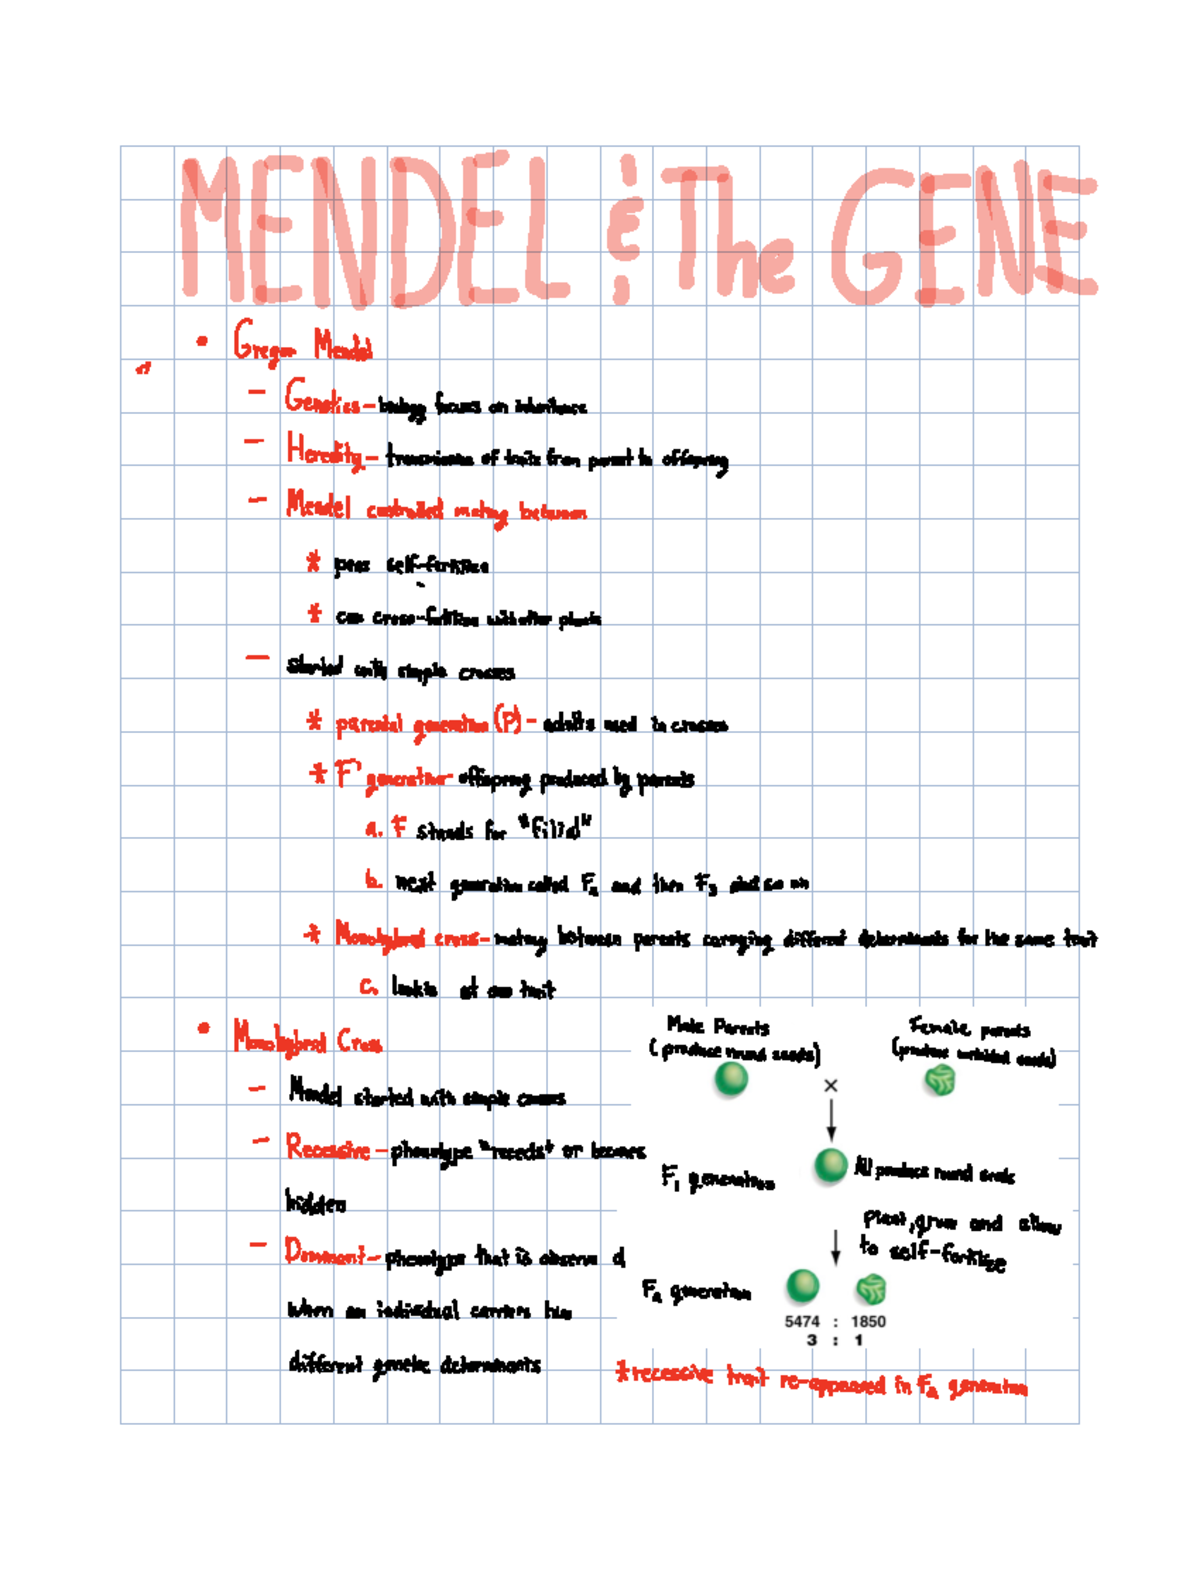 MENDEL & The GENE
• Gregor Mendel
- Genetics - biology focuses on inheritance
- Heredity - transmission of traits from parent to offspring
- Mendel controlled mating between
* peas self-fertilize
* can cross-fertilize with other plants
- Started with simple crosses
* parental generation (P) - adults used in crosses
* F' generation - offspring produced by parents
a. F stands for "filial"
b. next generation called F2 and then F3 and so on
* Monohybrid cross - mating between parents carrying different determinants for the same trait
c. lookin at one trait
• Monohybrid Cross
- Mendel started with simple crosses
- Recessive - phenotype "receds" or becomes
hidden
- Dominant - phenotype that is observe d
when an individual carriers two
different genetic determinants
Male Parents
(produce round seeds)
Female parents
(produce wrinkled seeds)
×
F1 generation
All produce round seeds
Plant, grow and allow
to self-fertilize
F2 generation
5474 : 1850
3 : 1
* recessive trait re-appeared in F2 generation